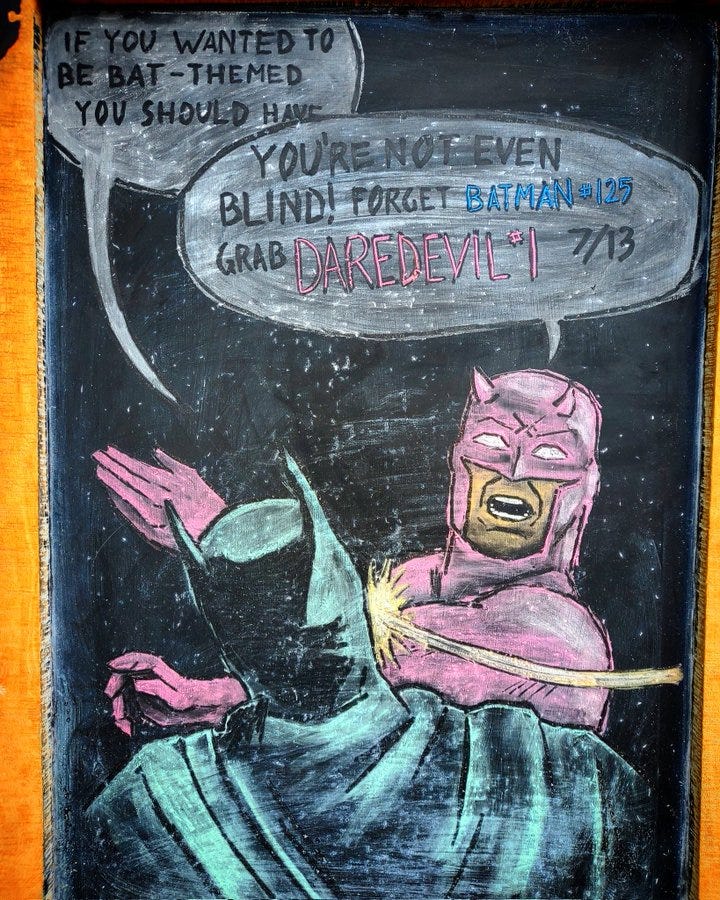 IF YOU WANTED TO
BE BAT-THEMED
YOU SHOULD HAVE
YOU'RE NOT EVEN
BLIND! FORGET BATMAN #125
GRAB DAREDEVIL #1 7/13